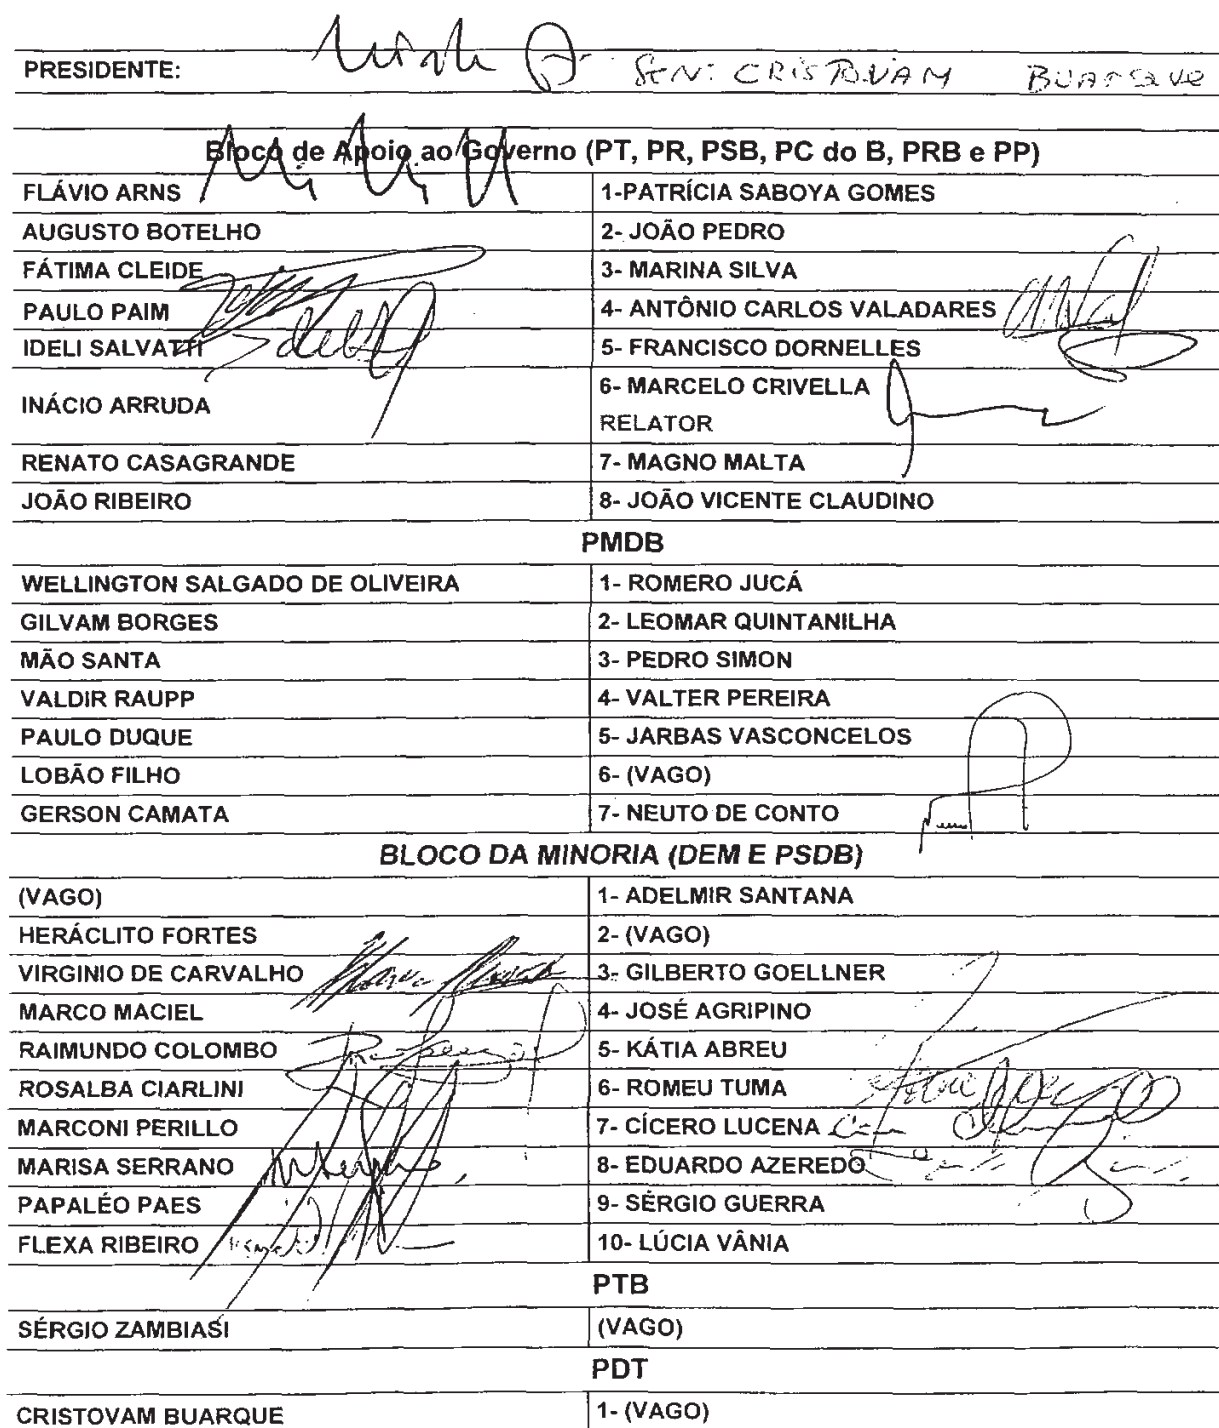 PRESIDENTE: SEN: CRISTOVAM BUARQUE
Bloco de Apoio ao Governo (PT, PR, PSB, PC do B, PRB e PP)
FLÁVIO ARNS 1-PATRÍCIA SABOYA GOMES
AUGUSTO BOTELHO 2- JOÃO PEDRO
FÁTIMA CLEIDE 3- MARINA SILVA
PAULO PAIM 4- ANTÔNIO CARLOS VALADARES
IDELI SALVATTI 5- FRANCISCO DORNELLES
INÁCIO ARRUDA 6- MARCELO CRIVELLA
RELATOR
RENATO CASAGRANDE 7- MAGNO MALTA
JOÃO RIBEIRO 8- JOÃO VICENTE CLAUDINO
PMDB
WELLINGTON SALGADO DE OLIVEIRA 1- ROMERO JUCÁ
GILVAM BORGES 2- LEOMAR QUINTANILHA
MÃO SANTA 3- PEDRO SIMON
VALDIR RAUPP 4- VALTER PEREIRA
PAULO DUQUE 5- JARBAS VASCONCELOS
LOBÃO FILHO 6- (VAGO)
GERSON CAMATA 7- NEUTO DE CONTO
BLOCO DA MINORIA (DEM E PSDB)
(VAGO) 1- ADELMIR SANTANA
HERÁCLITO FORTES 2- (VAGO)
VIRGINIO DE CARVALHO 3- GILBERTO GOELLNER
MARCO MACIEL 4- JOSÉ AGRIPINO
RAIMUNDO COLOMBO 5- KÁTIA ABREU
ROSALBA CIARLINI 6- ROMEU TUMA
MARCONI PERILLO 7- CÍCERO LUCENA
MARISA SERRANO 8- EDUARDO AZEREDO
PAPALÉO PAES 9- SÉRGIO GUERRA
FLEXA RIBEIRO 10- LÚCIA VÂNIA
PTB
SÉRGIO ZAMBIASI (VAGO)
PDT
CRISTOVAM BUARQUE 1- (VAGO)